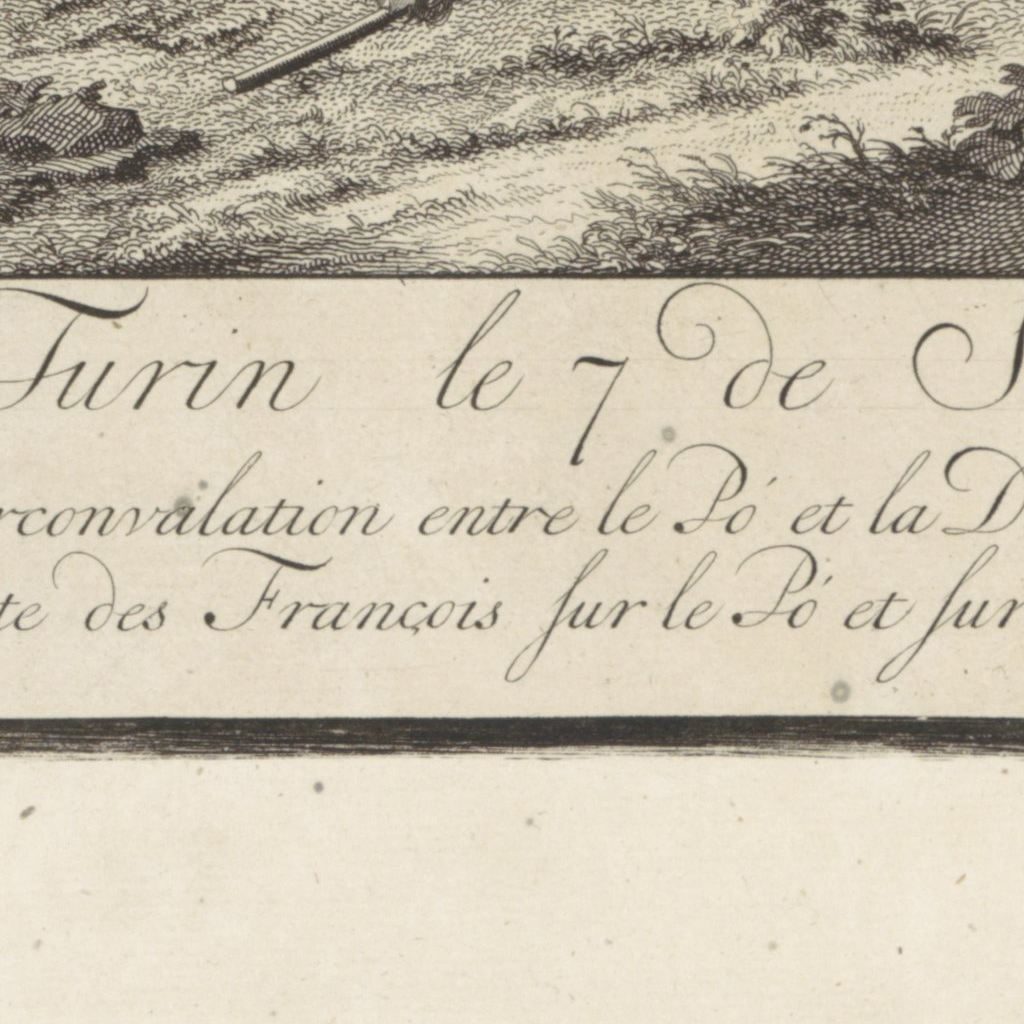 Turin le 7 de S
rconvalation entre le Pó et la D
te des François sur le Pó et sur